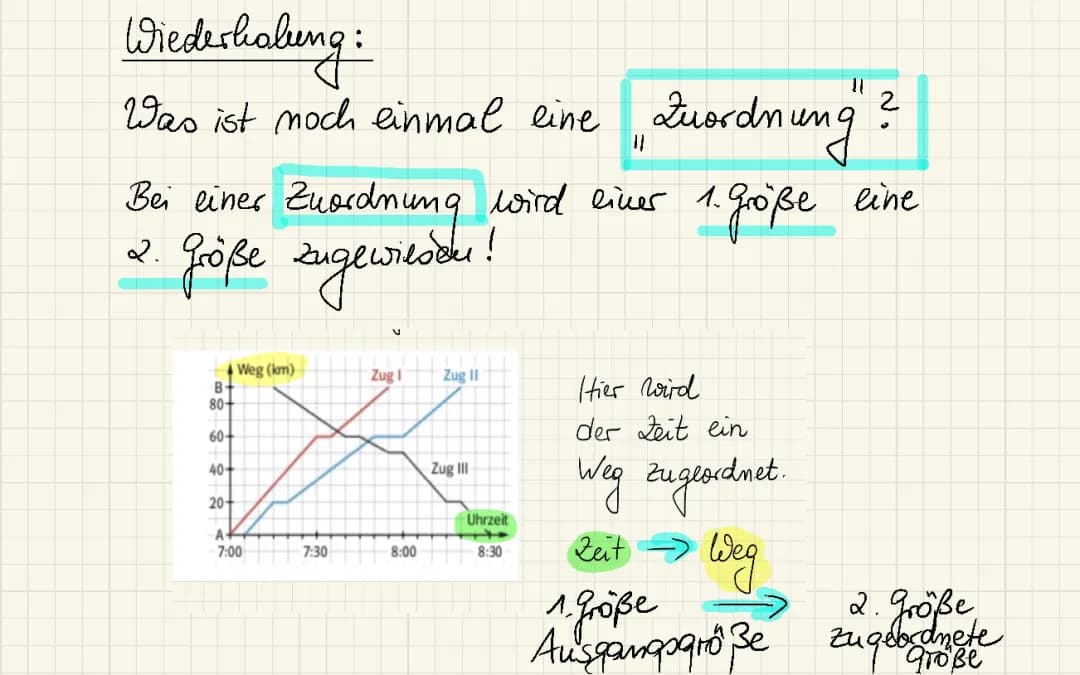 Wiederholung:
Was ist noch einmal eine „Zuordnung"?
Bei einer Zuordnung wird einer 1. Größe eine
2. Größe zugewiesen!
Weg (km)
Zug I
Zug II
B
80
60
40
20
A
Zug III
Uhrzeit
7:00 7:30 8:00 8:30
Hier wird
der Zeit ein
Weg zugeordnet.
Zeit → Weg
1. Größe → 2. Größe
Ausgangsgröße zugeordnete
Größe